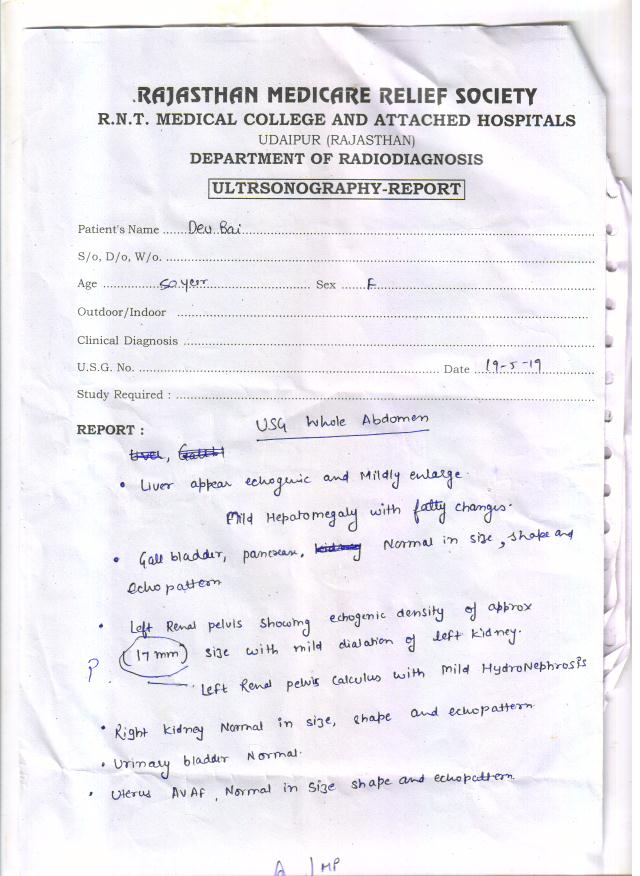 .RAJASTHAN MEDICARE RELIEF SOCIETY
R.N.T. MEDICAL COLLEGE AND ATTACHED HOSPITALS
UDAIPUR (RAJASTHAN)
DEPARTMENT OF RADIODIAGNOSIS
ULTRSONOGRAPHY-REPORT
Patient's Name ......Deu Bai......
S/o, D/o, W/o. ......
Age ......50 year...... Sex ......F......
Outdoor/Indoor ......
Clinical Diagnosis ......
U.S.G. No. ...... Date ...19-5-19......
Study Required : ......
REPORT : USG Whole Abdomen
Liver,
• Liver appear echogenic and Mildly enlarge.
Mild Hepatomegaly with fatty changes.
• Gall bladder, pancreas, kidney Normal in size, shape and
echopattern
• Left Renal pelvis showing echogenic density of approx
17 mm size with mild dialation of left kidney.
Left Renal pelvis calculus with Mild HydroNephrosis
• Right kidney Normal in size, shape and echopattern
• Urinary bladder Normal.
• Uterus AVAF, Normal in size shape and echopattern.
MP